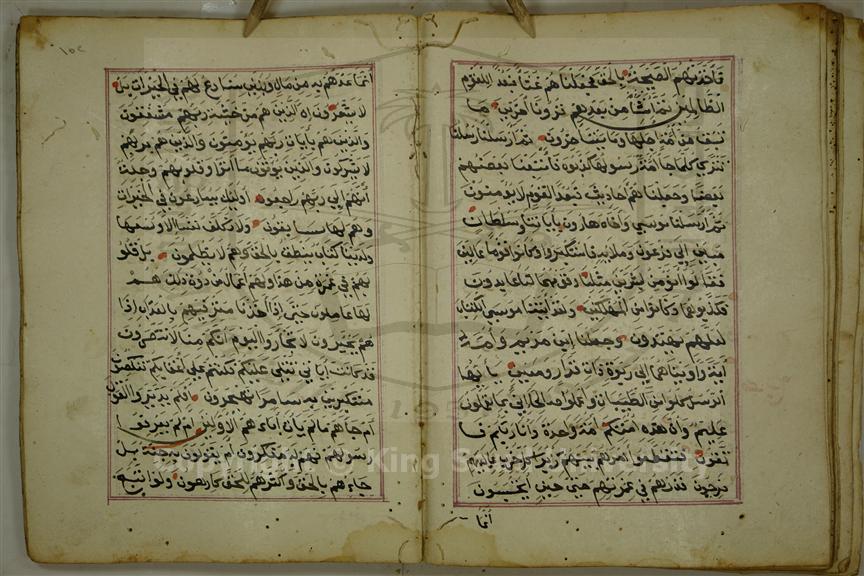 فأخذتهم الصيحة بالحق فجعلناهم غثاء فبعدا للقوم
الظالمين ثم انشأنا من بعدهم قرونا اخرين ما
تسبق من أمة اجلها وما يستاخرون ثم ارسلنا رسلنا
تتري كلما جا أمة رسولها كذبوه فاتبعنا بعضهم
بعضا وجعلناهم احاديث فبعدا لقوم لا يؤمنون
ثم ارسلنا موسي واخاه هارون باياتنا وسلطان
مبين إلي فرعون وملايه فاستكبروا وكانوا قوما عالين
فقالوا انؤمن لبشرين مثلنا وقومهما لنا عابدون
فكذبوهما وكانوا من المهلكين ولقد اتينا موسي الكتاب
لعلهم يهتدون وجعلنا ابن مريم وأمه
آية واويناهما إلي ربوة ذات قرار ومعين يأيها
الرسل كلوا من الطيبات واعملوا صالحا إني بما تعملون
عليم وان هذه امتكم امة واحدة وأنا ربكم فا
تقون فتقطعوا امرهم بينهم زبرا كل حزب بما لديهم
فرحون فذرهم في غمرتهم حتي حين أيحسبون
أنما
١٥٤
أنما نمدهم به من مال وبنين نسارع لهم في الخيرات بل
لا يشعرون ان الذين هم من خشية ربهم مشفقون
والذين هم بأيات ربهم يومنون والذين هم بربهم
لا يشركون والذين يؤتون ما اتوا وقلوبهم وجلة
أنهم إلي ربهم راجعون اوليك يسارعون في الخيرات
وهم لها سابقون ولا نكلف نفسا الا وسعها
ولدينا كتاب ينطق بالحق وهم لا يظلمون بل قلو
بهم في غمرة من هذا ولهم اعمال من دون ذلك هم
لها عاملون حتي إذا أخذنا مترفيهم بالعذاب إذا
هم يجئرون لا تجأروا اليوم انكم منا لا تنصرون
قد كانت اياتي تتلي عليكم فكنتم علي أعقابكم تنكصون
مستكبرين به سامرا تهجرون افلم يدبروا القول
أم جاهم مالم يأت أباءهم الاولين ام لم يعرفوا
رسولهم فهم له منكرون أم يقولون به جنة بل
جاءهم بالحق وأكثرهم للحق كارهون ولو اتبع
© King Saud University